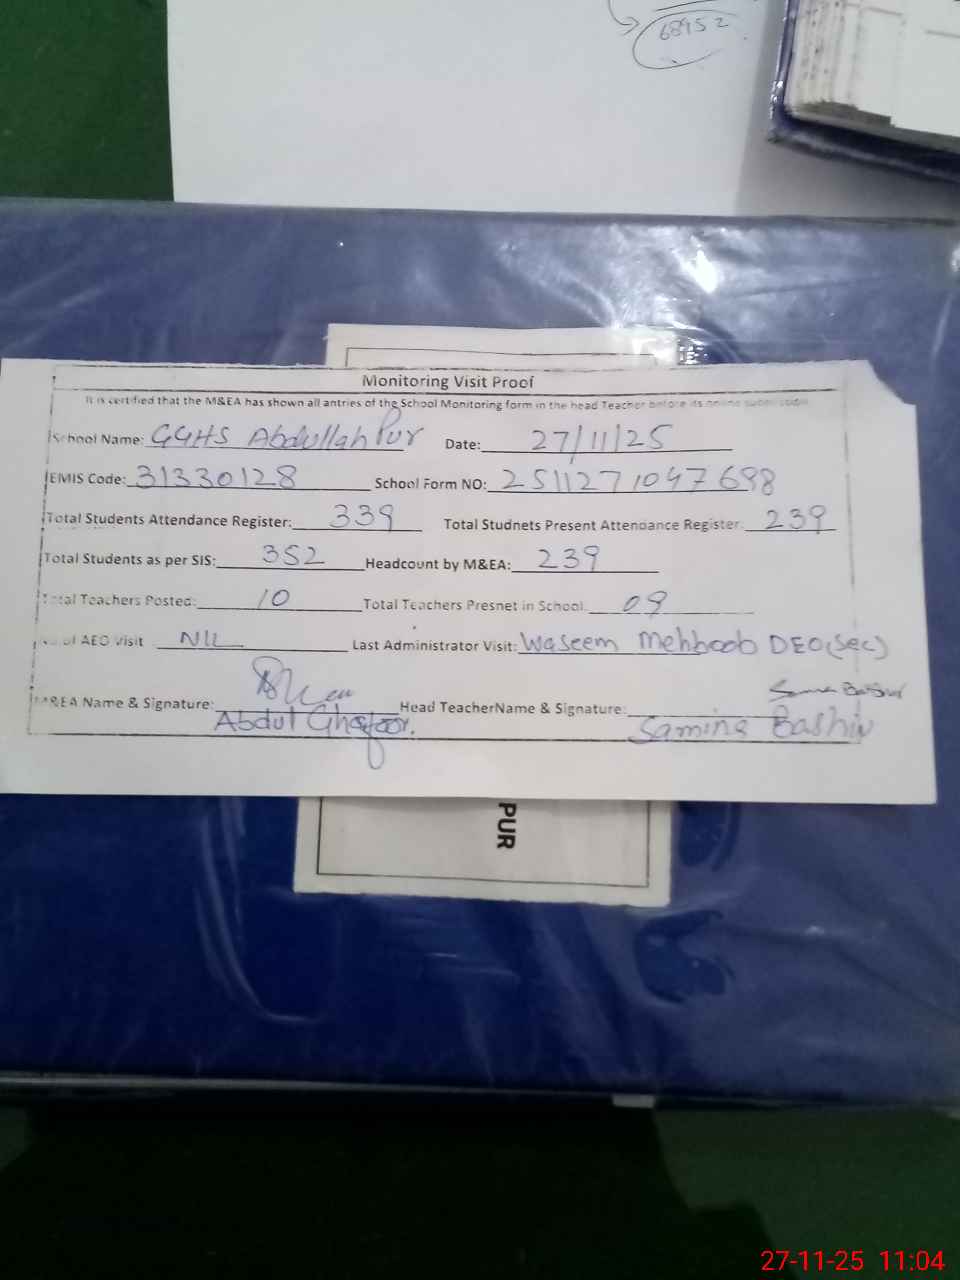 68952
Monitoring Visit Proof
It is certified that the M&EA has shown all antries of the School Monitoring form in the head Teacher before its online submission
School Name: GGHS Abdullah Pur Date: 27/11/25
EMIS Code: 31330128 School Form NO: 2511271047698
Total Students Attendance Register: 339 Total Studnets Present Attendance Register: 239
Total Students as per SIS: 352 Headcount by M&EA: 239
Total Teachers Posted: 10 Total Teachers Presnet in School: 09
of AEO Visit NIL Last Administrator Visit: Waseem Mehboob DEO(Sec)
M&EA Name & Signature: Head TeacherName & Signature:
Abdul Ghafoor. Samina Bashir
PUR
27-11-25 11:04